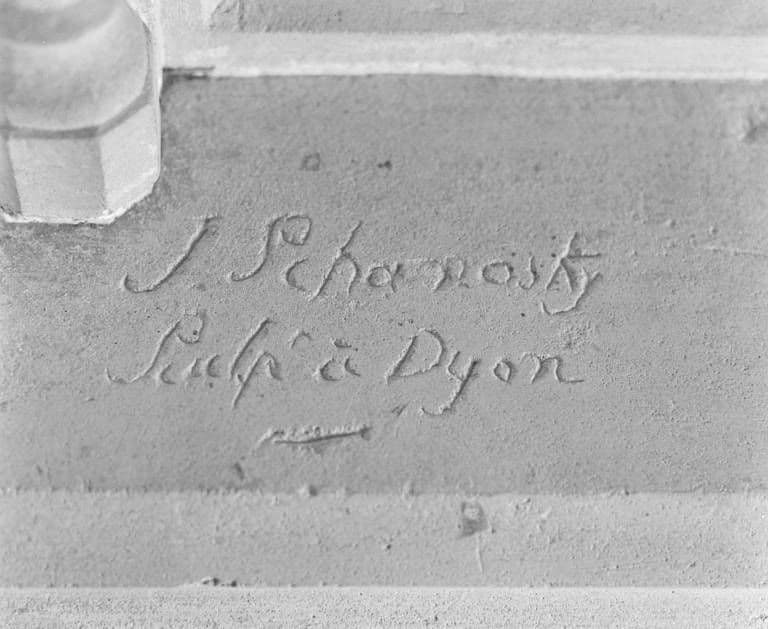 J. Schanosky
Sculpr à Dyon